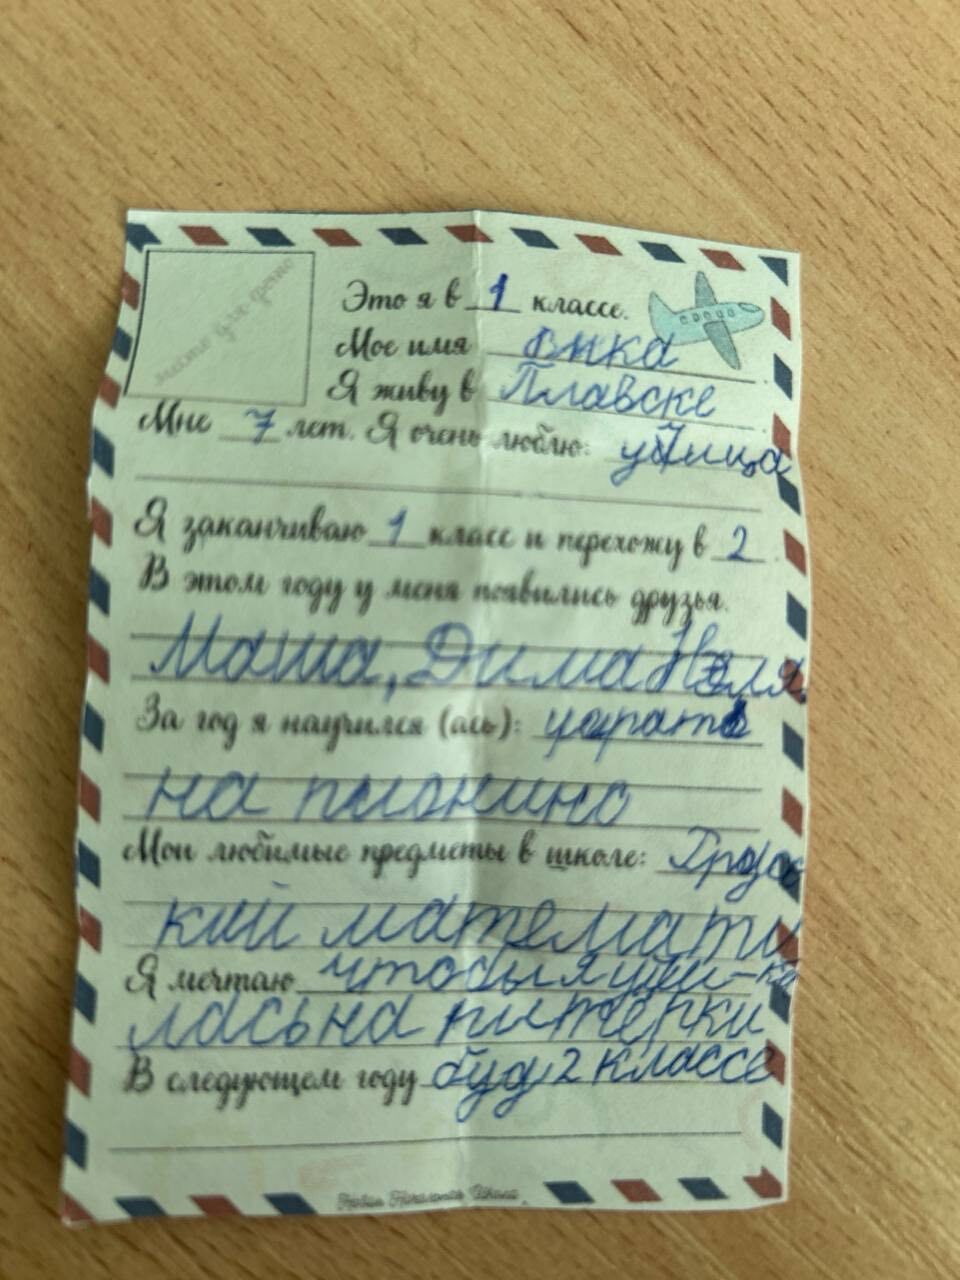 место для фото
Это я в 1 классе.
Мое имя Вика
Я живу в Плавске
Мне 7 лет. Я очень люблю:
Я заканчиваю 1 класс и перехожу в 2.
В этом году у меня появились друзья.
Маша, Дима Неля
За год я научился (ась):
на пионино
Мои любимые предметы в школе:
кий математи
Я мечтаю чтобы я учи-ка
лась на питерки
В следующем году буду 2 классе
Новая Начальная Школа